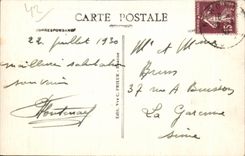 42
CARTE POSTALE
CORRESPONDANCE
22 juillet 1930
meilleure salutation
souvenir
Mr et Mme
Bruns
37 rue A Buisson
La Garenne
Seine